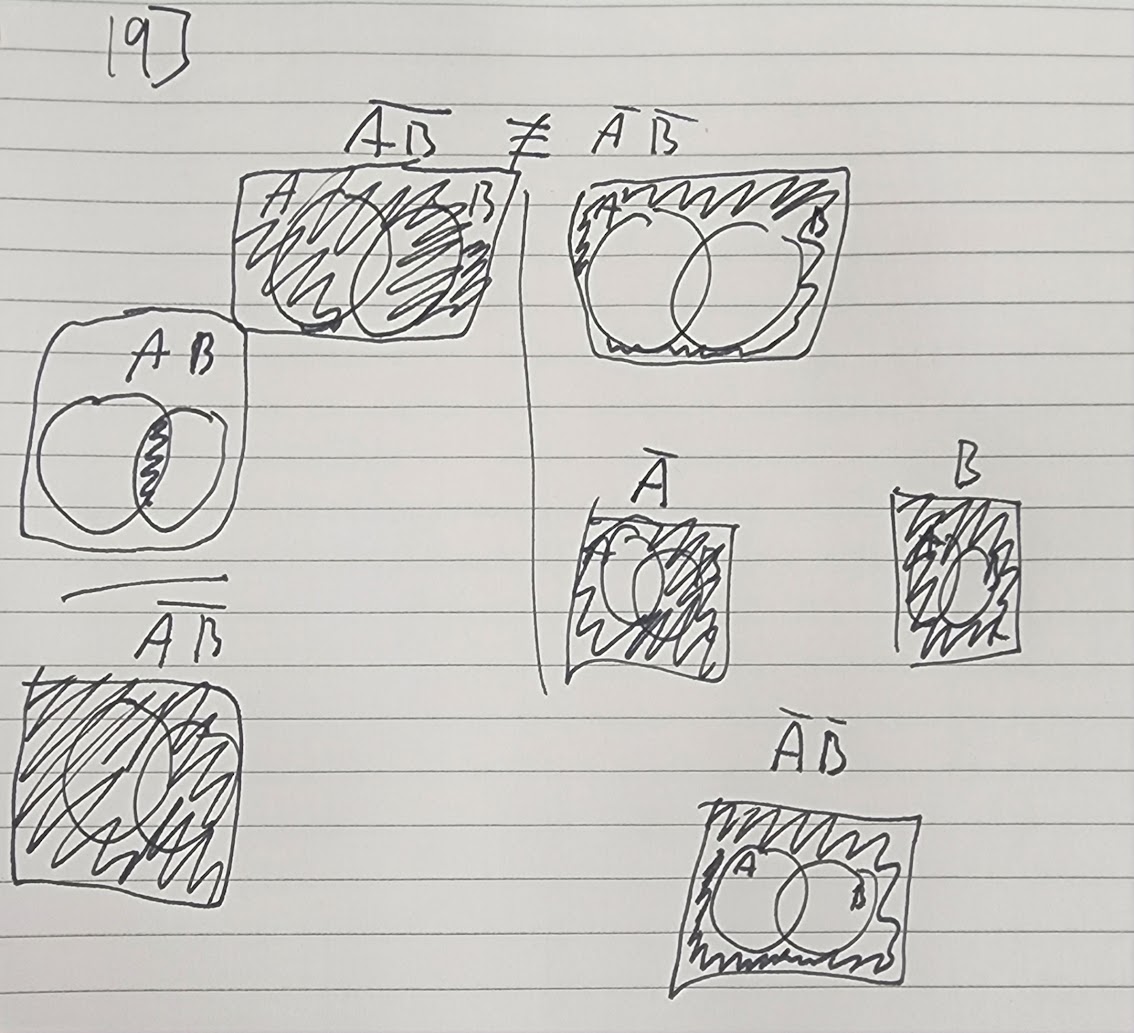 19]
A̅B̅ ≢ A̅ B̅
A B
A B
A B
A̅
B
A
A
A̅B̅
A̅ B̅
A
B